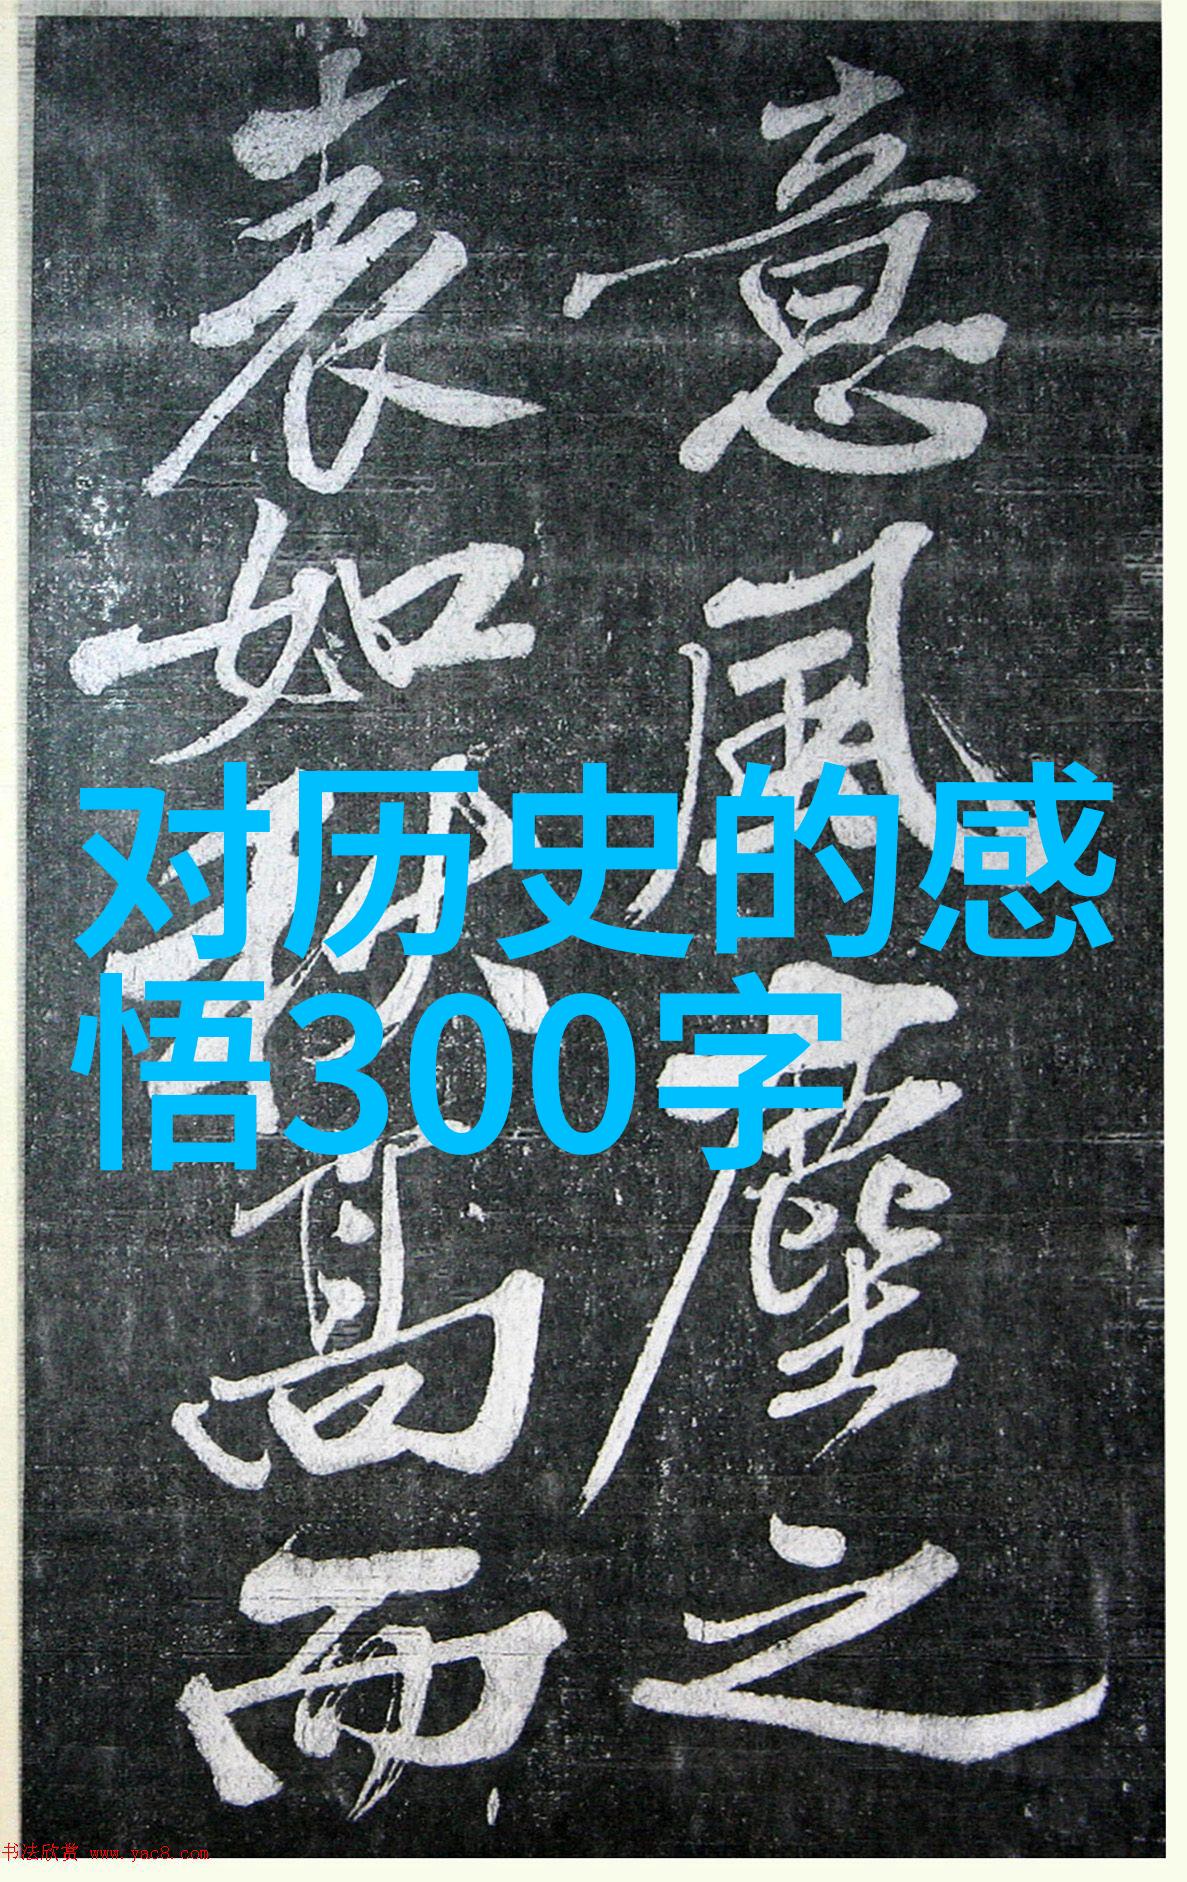 意風塵之
表如秋高而
对历史的感
悟300字
书法欣赏 www.yac8.com